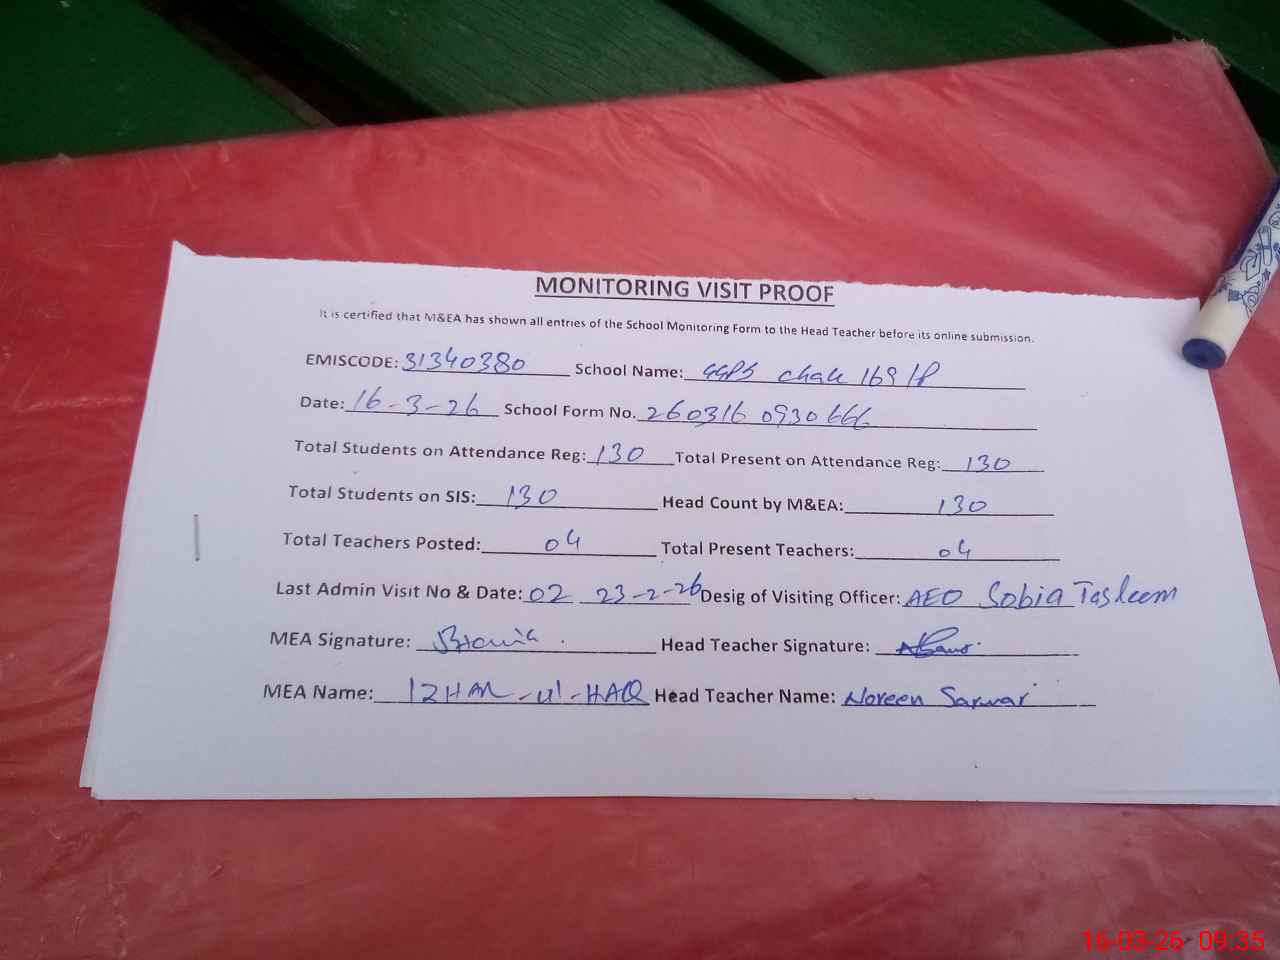 MONITORING VISIT PROOF
It is certified that M&EA has shown all entries of the School Monitoring Form to the Head Teacher before its online submission.
EMISCODE: 31340380 School Name: GGPS Chak 169 1P
Date: 16-3-26 School Form No. 260316 0930666
Total Students on Attendance Reg: 130 Total Present on Attendance Reg: 130
Total Students on SIS: 130 Head Count by M&EA: 130
Total Teachers Posted: 04 Total Present Teachers: 04
Last Admin Visit No & Date: 02 23-2-26 Desig of Visiting Officer: AEO Sobia Tasleem
MEA Signature: Head Teacher Signature:
MEA Name: IZHAR-ul-HAQ Head Teacher Name: Noreen Sarwar
16-03-26 09:35